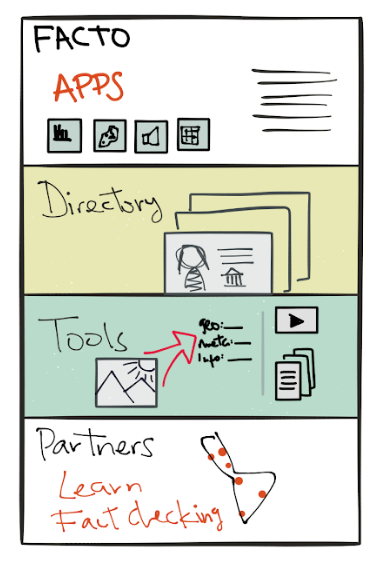 FACTO
APPS
Directory
Tools
geo:
meta:
info:
Partners
Learn
Fact checking